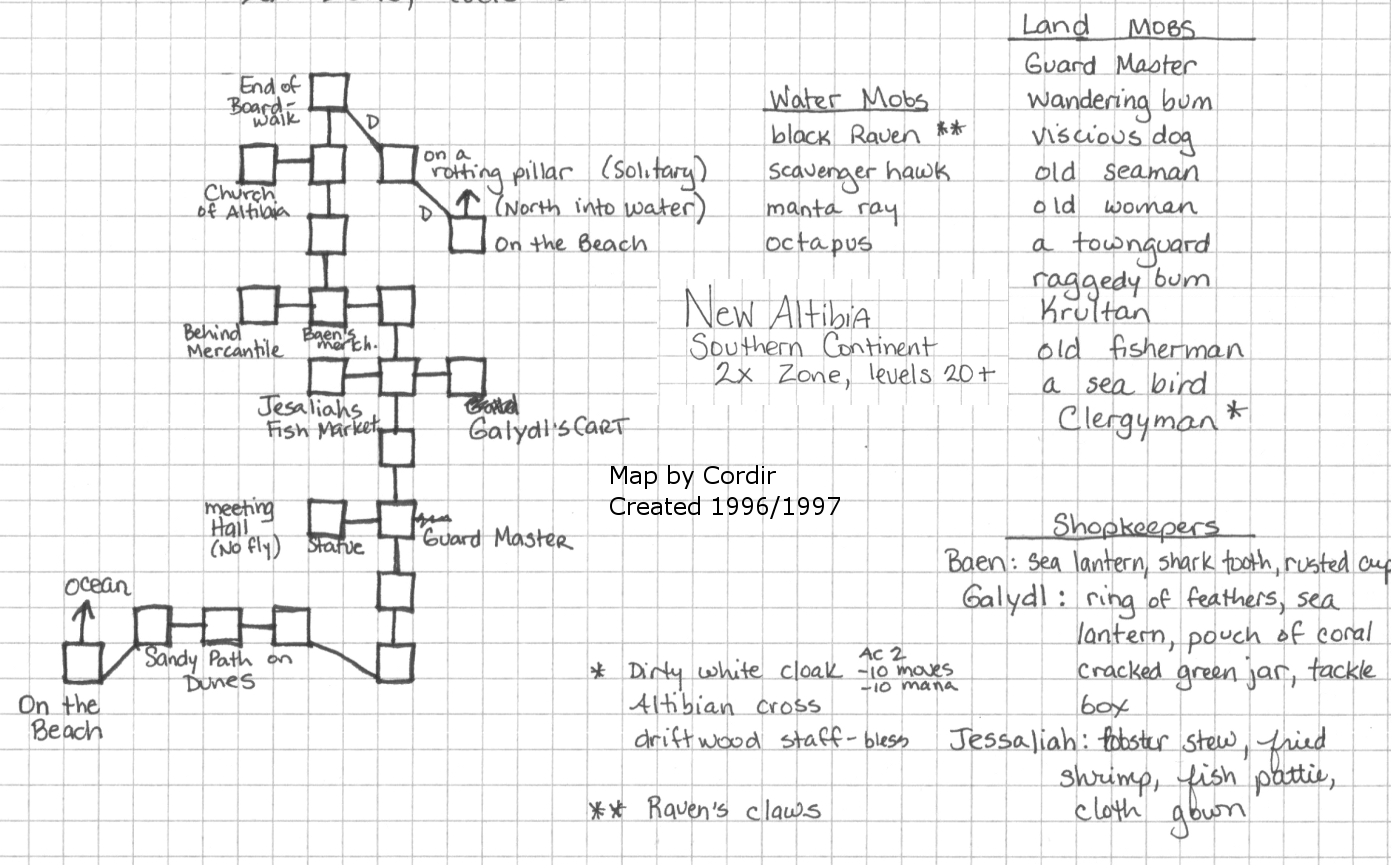 Land Mobs
Guard Master
wandering bum
viscious dog
old seaman
old woman
a townguard
raggedy bum
Krultan
old fisherman
a sea bird
Clergyman *
Water Mobs
black Raven **
scavenger hawk
manta ray
octapus
End of
Board-
walk
D
on a
rotting pillar (Solitary)
Church
of Altibia
D
(North into water)
On the Beach
Behind
Mercantile
Baen's
merch.
Jesaliahs
Fish Market
Galydl's CART
New Altibia
Southern Continent
2x Zone, levels 20+
Map by Cordir
Created 1996/1997
meeting
Hall
(No fly)
Statue
Guard Master
ocean
Sandy Path on
Dunes
On the
Beach
* Dirty white cloak
AC 2
-10 moves
-10 mana
Altibian cross
driftwood staff - bless
** Raven's claws
Shopkeepers
Baen: sea lantern, shark tooth, rusted cup
Galydl: ring of feathers, sea
lantern, pouch of coral
cracked green jar, tackle
box
Jessaliah: lobster stew, fried
shrimp, fish pattie,
cloth gown